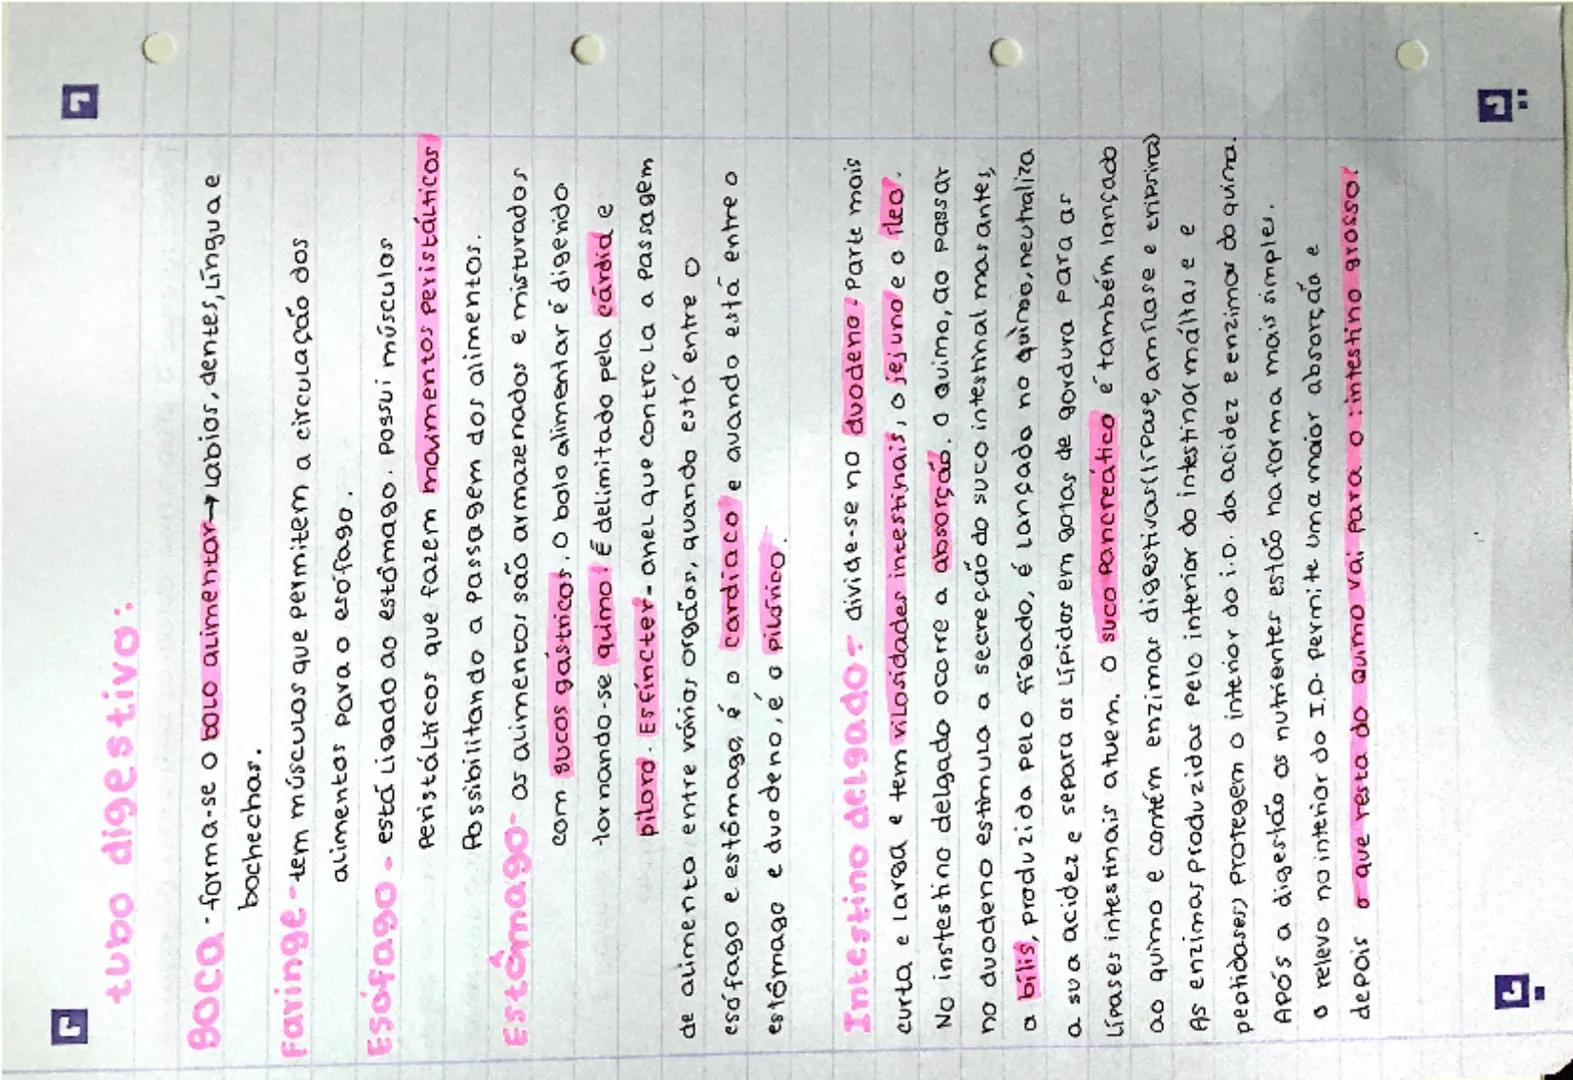 tubo digestivo:
Boca - forma-se o bolo alimentar → Labios, dentes, Língua e
bochechas.
Faringe - tem músculos que permitem a circulação dos
alimentos para o esófago.
Esófago - está Ligado ao estômago. Possui músculos
Peristálticos que fazem movimentos peristálticos
Possibilitando a passagem dos alimentos.
Estômago - os alimentos são armazenados e misturados
com sucos gástricos. O bolo alimentar é digerido
tornando-se quimo! É delimitado pela cárdia e
piloro. Esfíncter - anel que controla a passagem
de alimento entre vários orgãos, quando está entre o
esófago e estômago, é o cardiaco e quando está entre o
estômago e duodeno, é o pilórico.
Intestino delgado - divide-se no duodeno! Parte mais
curta e larga e tem vilosidades intestinais, o jejuno e o íleo!
No instestino delgado ocorre a absorção. O quimo, ao passar
no duodeno estimula a secreção do suco intestinal mas antes,
a bílis, produzida pelo fígado, é Lançada no quimo, neutraliza
a sua acidez e separa os Lípidos em gotas de gordura para as
Lípases intestinais atuem. O suco Pancreático é também lançado
ao quimo e contém enzimas digestivas (lípase, amílase e
As enzimas produzidas pelo interior do intestino (maltas e e
peptidases) protegem o interior do i.D. da acidez e enzimas do quimo.
Após a digestão os nutrientes estão na forma mais simples.
O relevo no interior do I.D. permite uma maior absorção e
depois o que resta do quimo vai para o : intestino grosso!